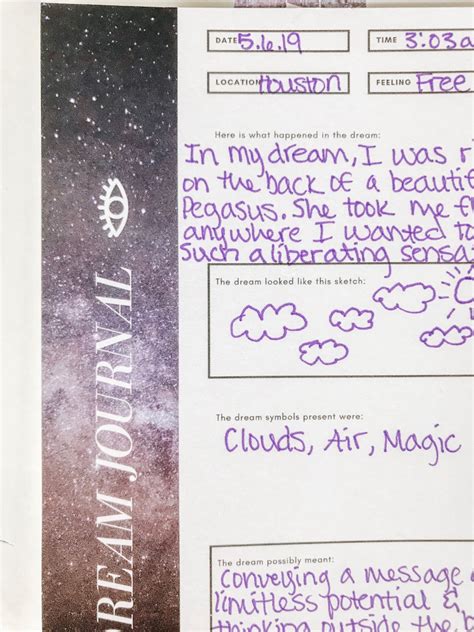 DATE 5.6.19 TIME 3:03a
LOCATION Houston FEELING Free
Here is what happened in the dream:
In my dream, I was r
on the back of a beautif
Pegasus. She took me f
anywhere I wanted to
such a liberating sensa
The dream looked like this sketch:
The dream symbols present were:
Clouds, Air, Magic
The dream possibly meant:
Conveying a message
limitless potential &
thinking outside the
REAM JOURNAL